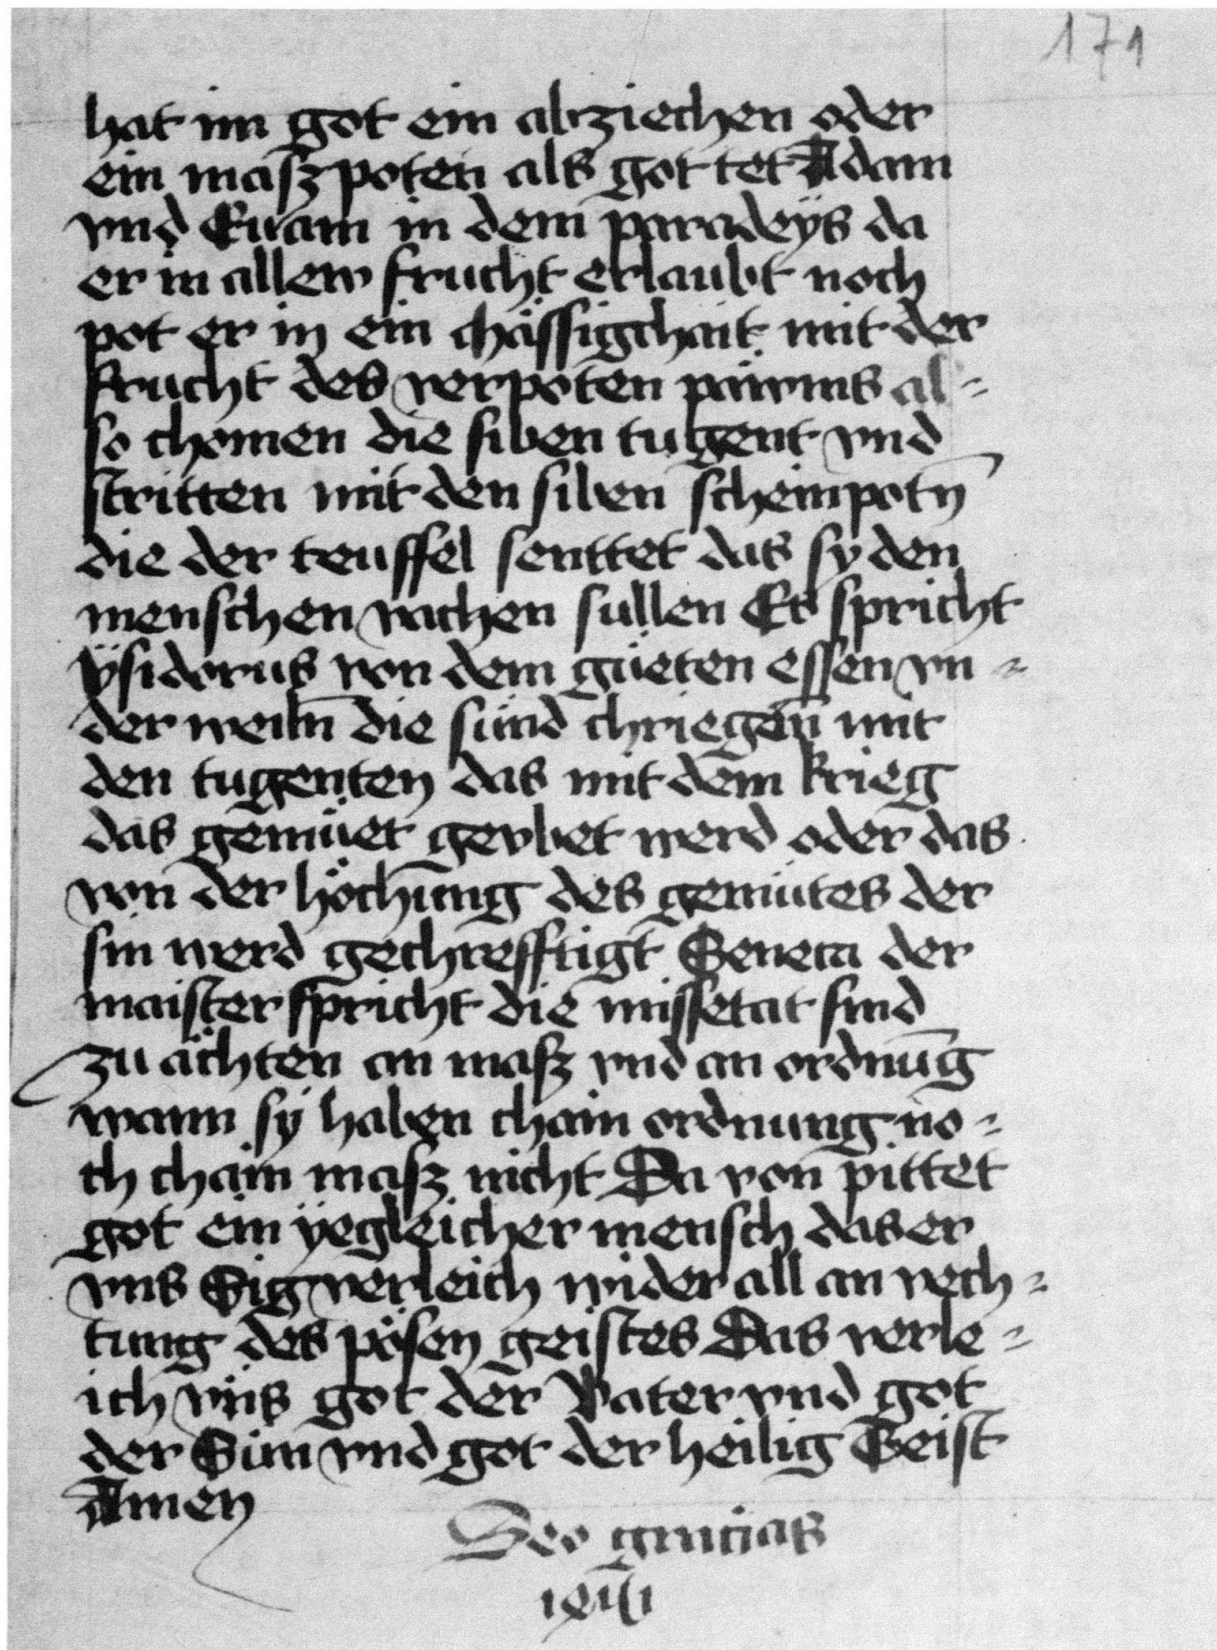 171
hat im got ein abziechen oder
ein maszpoten als got tet Adam
vnd Euam in dem paradeÿs da
er in allew frucht erlaubt noch
pot er in ein chässigchait mit der
frucht des verpoten päwms al=
so chomen die siben tugent vnd
stritten mit den siben scheinpotn̄
die der teuffel senttet das sy den
menschen vachen sullen Es spricht
ÿsidorus von dem güeten essen vn=
der weiln̄ die sünd chriegen mit
den tugenten das mit dem krieg
das gemüet gevbet werd oder das
von der höchūng des gemütes der
sin werd gechrefftigt Seneca der
maister spricht die missetat sind
zu ächten an masz vnd an ordnūg
wann sÿ haben chain ordnung no=
ch chain masz nicht Da von pittet
got ein ÿegleicher mensch das er
vns Sig verleich wider all an vech=
tung des pösen geistes Das verle=
ich vns got der Vater vnd got
der Sun vnd got der heilig Geist
Amen
Deo gracias